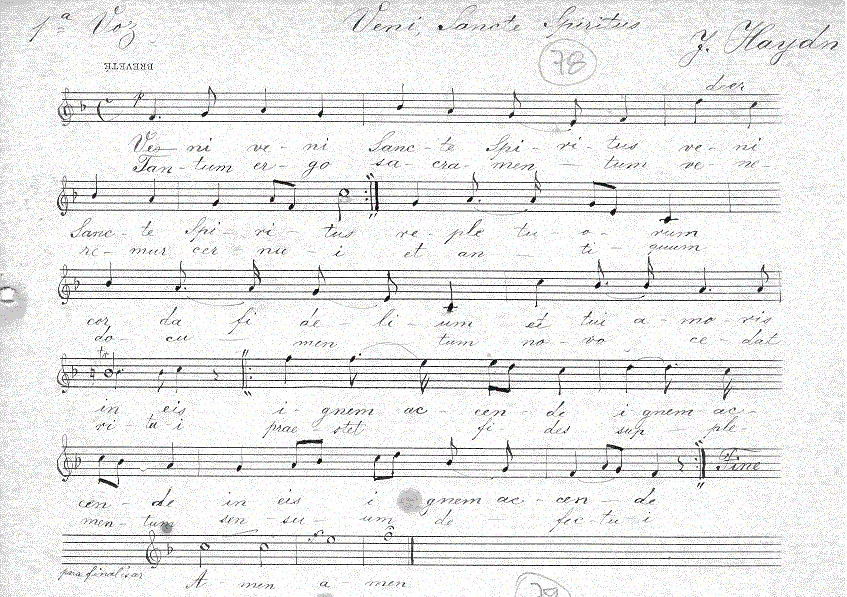 1ª Voz
Veni, Sancte Spiritus
J. Haydn
78
BREVETÉ
p
Ve - ni ve - ni Sanc - te Spi - ri - tus ve - ni
Tan - tum er - go sa - cra - men - tum ve - ne -
Sanc - te Spi - ri - tus re - ple tu - o - rum
re - mur cer - nu - i et an - ti - quum
cor - da fi de - li - um et tui a - mo - ris
do - cu - men tum no - vo ce - dat
tr
in eis i - gnem ac - cen - de i - gnem ac -
ri - tu - i prae - stet fi - des sup - ple -
cen - de in eis i gnem ac - cen - de
Fine
men - tum sen - su - um de - fec - tu - i
para finalisar
A - men a - men
79